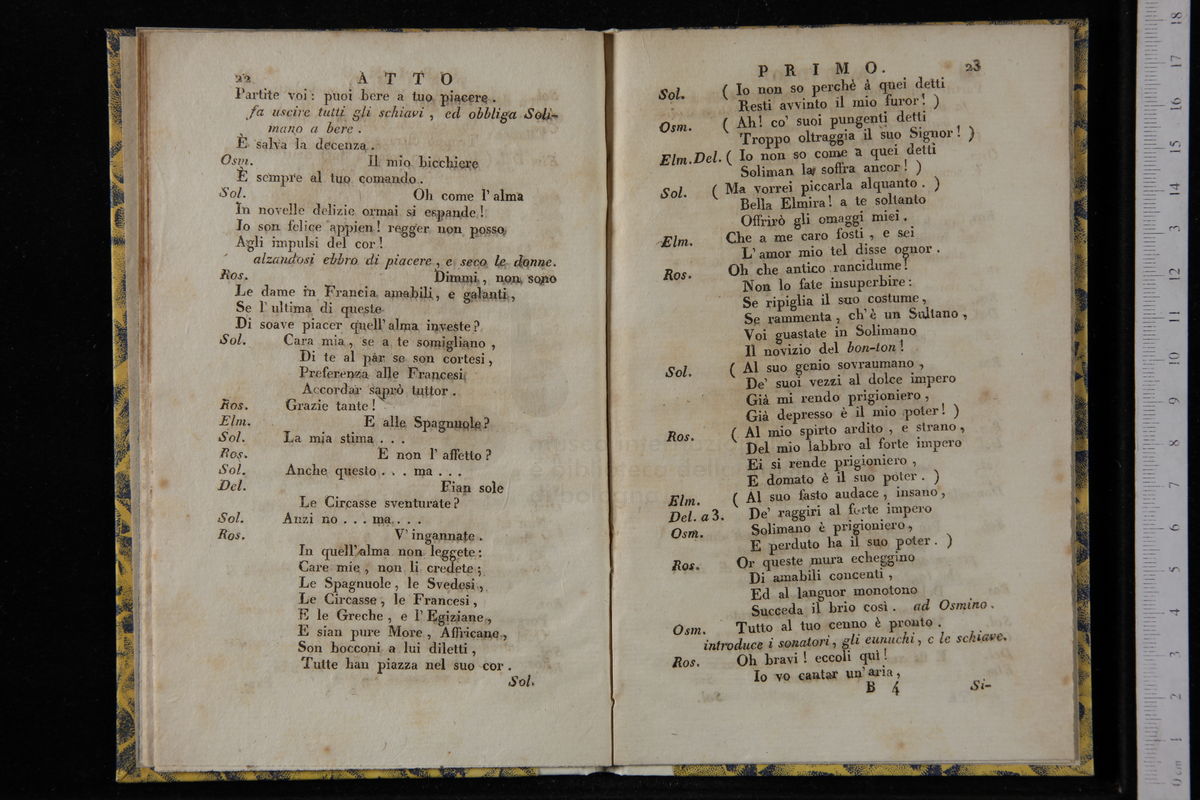 22 ATTO
Partite voi: puoi bere a tuo piacere.
fa uscire tutti gli schiavi, ed obbliga Soli-
mano a bere.
È salva la decenza.
Osm. Il mio bicchiere
È sempre al tuo comando.
Sol. Oh come l'alma
In novelle delizie ormai si espande!
Io son felice appien! regger non posso
Agli impulsi del cor!
alzandosi ebbro di piacere, e seco le donne.
Ros. Dimmi, non sono
Le dame in Francia amabili, e galanti,
Se l'ultima di queste
Di soave piacer quell'alma investe?
Sol. Cara mia, se a te somigliano,
Di te al par se son cortesi,
Preferenza alle Francesi
Accordar saprò tuttor.
Ros. Grazie tante!
Elm. E alle Spagnuole?
Sol. La mia stima . . .
Ros. E non l'affetto?
Sol. Anche questo . . . ma . . .
Del. Fian sole
Le Circasse sventurate?
Sol. Anzi no . . . ma . . .
Ros. V'ingannate.
In quell'alma non leggete:
Care mie, non li credete;
Le Spagnuole, le Svedesi,
Le Circasse, le Francesi,
E le Greche, e l'Egiziane,
E sian pure More, Affricane,
Son bocconi a lui diletti,
Tutte han piazza nel suo cor.
Sol.
PRIMO. 23
Sol. ( Io non so perchè à quei detti
Resti avvinto il mio furor! )
Osm. ( Ah! co' suoi pungenti detti
Troppo oltraggia il suo Signor! )
Elm. Del. ( Io non so come a quei detti
Soliman la soffra ancor! )
Sol. ( Ma vorrei piccarla alquanto. )
Bella Elmira! a te soltanto
Offrirò gli omaggi miei.
Elm. Che a me caro fosti, e sei
L'amor mio tel disse ognor.
Ros. Oh che antico rancidume!
Non lo fate insuperbire:
Se ripiglia il suo costume,
Se rammenta, ch'è un Sultano,
Voi guastate in Solimano
Il novizio del bon-ton!
Sol. ( Al suo genio sovraumano,
De' suoi vezzi al dolce impero
Già mi rendo prigioniero,
Già depresso è il mio poter! )
Ros. ( Al mio spirto ardito, e strano,
Del mio labbro al forte impero
Ei si rende prigioniero,
E domato è il suo poter. )
Elm. ( Al suo fasto audace, insano,
Del. a 3. De' raggiri al forte impero
Osm. Solimano è prigioniero,
E perduto ha il suo poter. )
Ros. Or queste mura echeggino
Di amabili concenti,
Ed al languor monotono
Succeda il brio così. ad Osmino.
Osm. Tutto al tuo cenno è pronto.
introduce i sonatori, gli eunuchi, e le schiave.
Ros. Oh bravi! eccoli quì!
Io vo cantar un'aria,
B 4 Si-